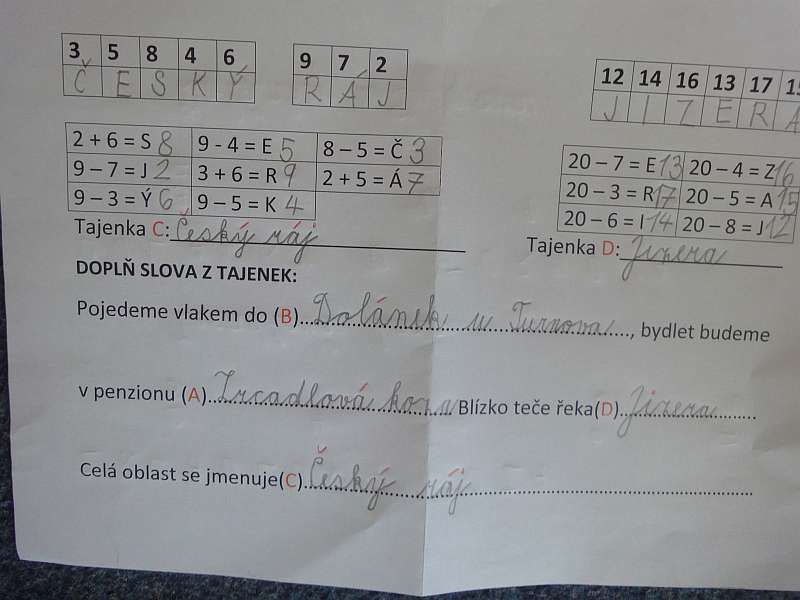 3 5 8 4 6
Č E S K Ý
9 7 2
R Á J
12 14 16 13 17 15
J I Z E R A
2 + 6 = S 8 9 - 4 = E 5 8 – 5 = Č 3
9 – 7 = J 2 3 + 6 = R 9 2 + 5 = Á 7
9 – 3 = Ý 6 9 – 5 = K 4
Tajenka C: Český ráj
20 – 7 = E 13 20 – 4 = Z 16
20 – 3 = R 17 20 – 5 = A 15
20 – 6 = I 14 20 – 8 = J 12
Tajenka D: Jizera
DOPLŇ SLOVA Z TAJENEK:
Pojedeme vlakem do (B)...Dolánek u Turnova..., bydlet budeme
v penzionu (A)...Zrcadlová koza Blízko teče řeka(D)...Jizera...
Celá oblast se jmenuje(C)...Český ráj...